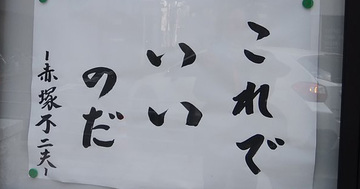 これで
いい
のだ
ー赤塚不二夫ー